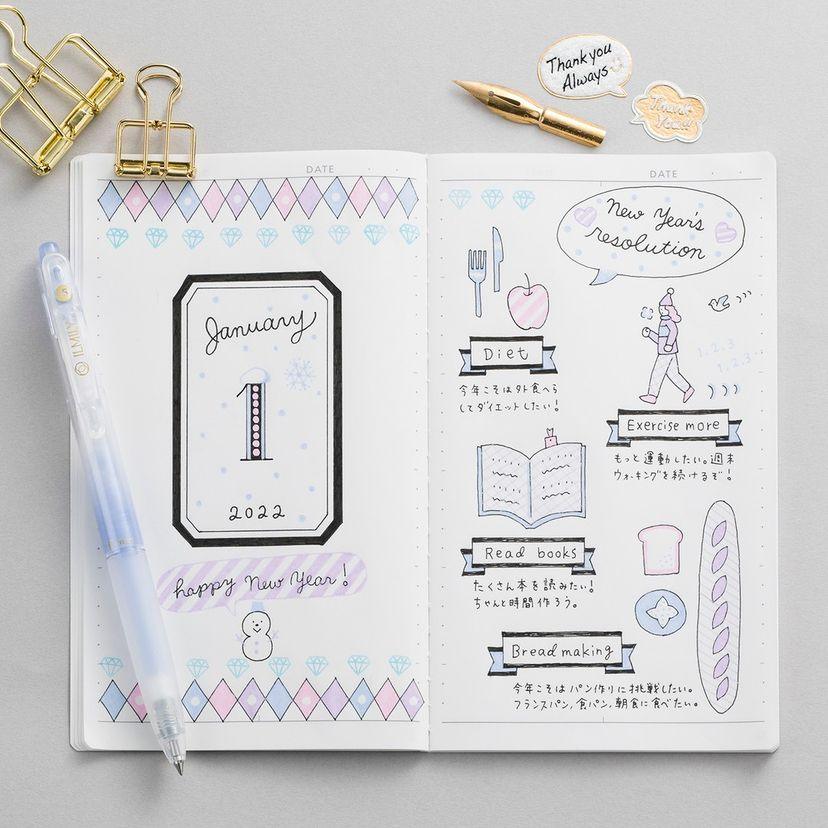 Thank you
Always
Thank
You!!
DATE
January
1
2022
happy New Year!
ILMILY
DATE
New Year's
resolution
Diet
今年こそは外食へら
してダイエットしたい!
1.2.3
1.2.3...
Exercise more
もっと運動したい。週末
ウォーキングを続けるぞ!
Read books
たくさん本を読みたい!
ちゃんと時間作ろう。
Bread making
今年こそはパン作りに挑戦したい。
フランスパン,食パン,朝食に食べたい。